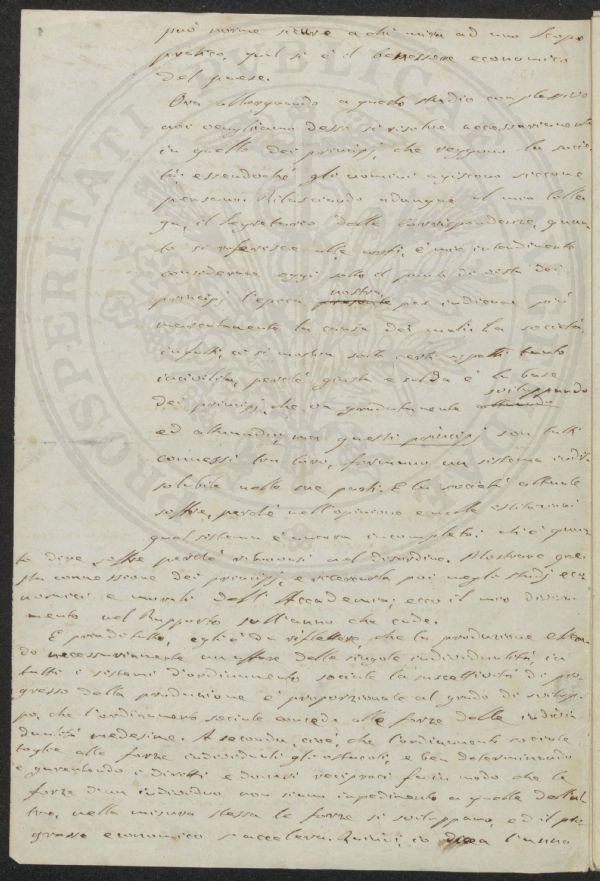 può norme sicure a chi mira ad uno scopo
pratico, qual si è il benessere economico
del paese.
Ora allorquando a questo studio complessivo
noi vengliamo desso si risolve necessariamente
in quello dei principj, che reggono la socie-
tà: essendoché gli uomini agiscono siccome
pensano. Rilasciando adunque al mio colle-
ga, il Segretario delle Corrispondenze, quan-
to si riferisce alle , è mio intendimento
considerare oggi sotto il punto di vista dei
principj l'epoca presente nostra per indicar più
nescutamente la causa dei mali. La società,
infatti, ci si mostra sotto certi rispetti tanto
incivilita, perché giusta e salda è la base
dei principj, che va gradatamente attuando sviluppando
ed attuando; ma questi principj son tutti
connessi tra loro, formano un sistema indis-
solubile nelle sue parti. E la società attuale
soffre, perché nell'opinione e nelle istituzioni
qual sistema è ancora incompleto: ciò è quan-
to dire soffre perché rimansi nel disordine. Mostrare que-
sta connessione dei principj, e ritrovarla poi negli studj eco-
nomici e morali dell'Accademia; ecco il mio divisa-
mento nel Rapporto sull'anno che cade.
E prima di tutto, egli è da riflettere, che la produzione essen-
do necessariamente un affare delle singole individualità, in
tutti i sistemi d'ordinamento sociale la suscettività di pro-
gresso della produzione è proporzionale al grado di svilup-
po, che l'ordinamento sociale concede alle forze delle indivi-
dualità medesime. A seconda, cioè, che l'ordinamento sociale
toglie alle forze individuali gli ostacoli, e ben determinando
e garantendo i diritti e doveri reciproci fa in modo che le
forze d'un individuo non siano impedimento a quelle dell'al-
tro, nella misura stessa le forze si sviluppano, ed il pro-
gresso economico si accelera. Quindi, io dicea l'anno